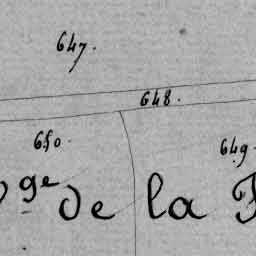 647.
648.
650.
649.
ge de la